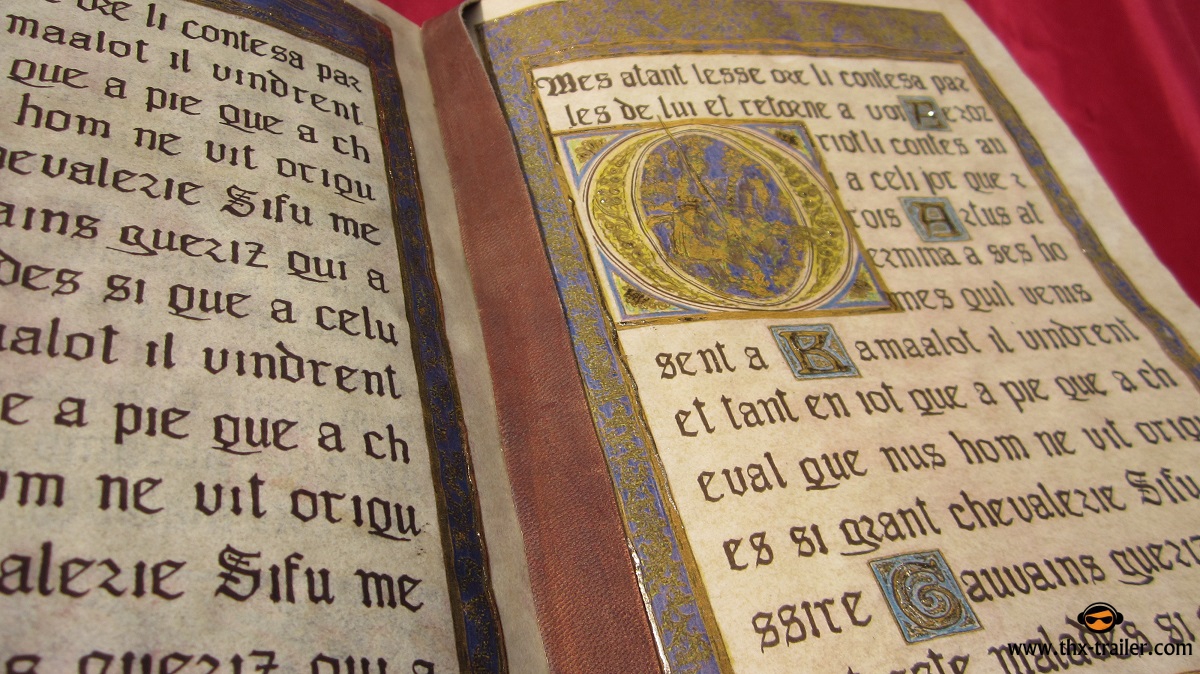 ore li contesa par
maalot il vindrent
que a pie que a ch
hom ne vit origu
hevalerie Sifu me
ains gueriz qui a
des si que a celu
aalot il vindrent
e a pie que a ch
om ne vit origu
alerie Sifu me
s gueriz qui a
Mes atant lesse ore li contesa par
les de lui et retorne a
riotli contes au
a celi jor que
rois Artus at
ermina a ses ho
mes quil venis
sent a Kamaalot il vindrent
et tant en iot que a pie que a ch
eval que nus hom ne vit orig
es si grant chevalerie Sifu
ssire Gauvains gueri
malades si
www.thx-trailer.com